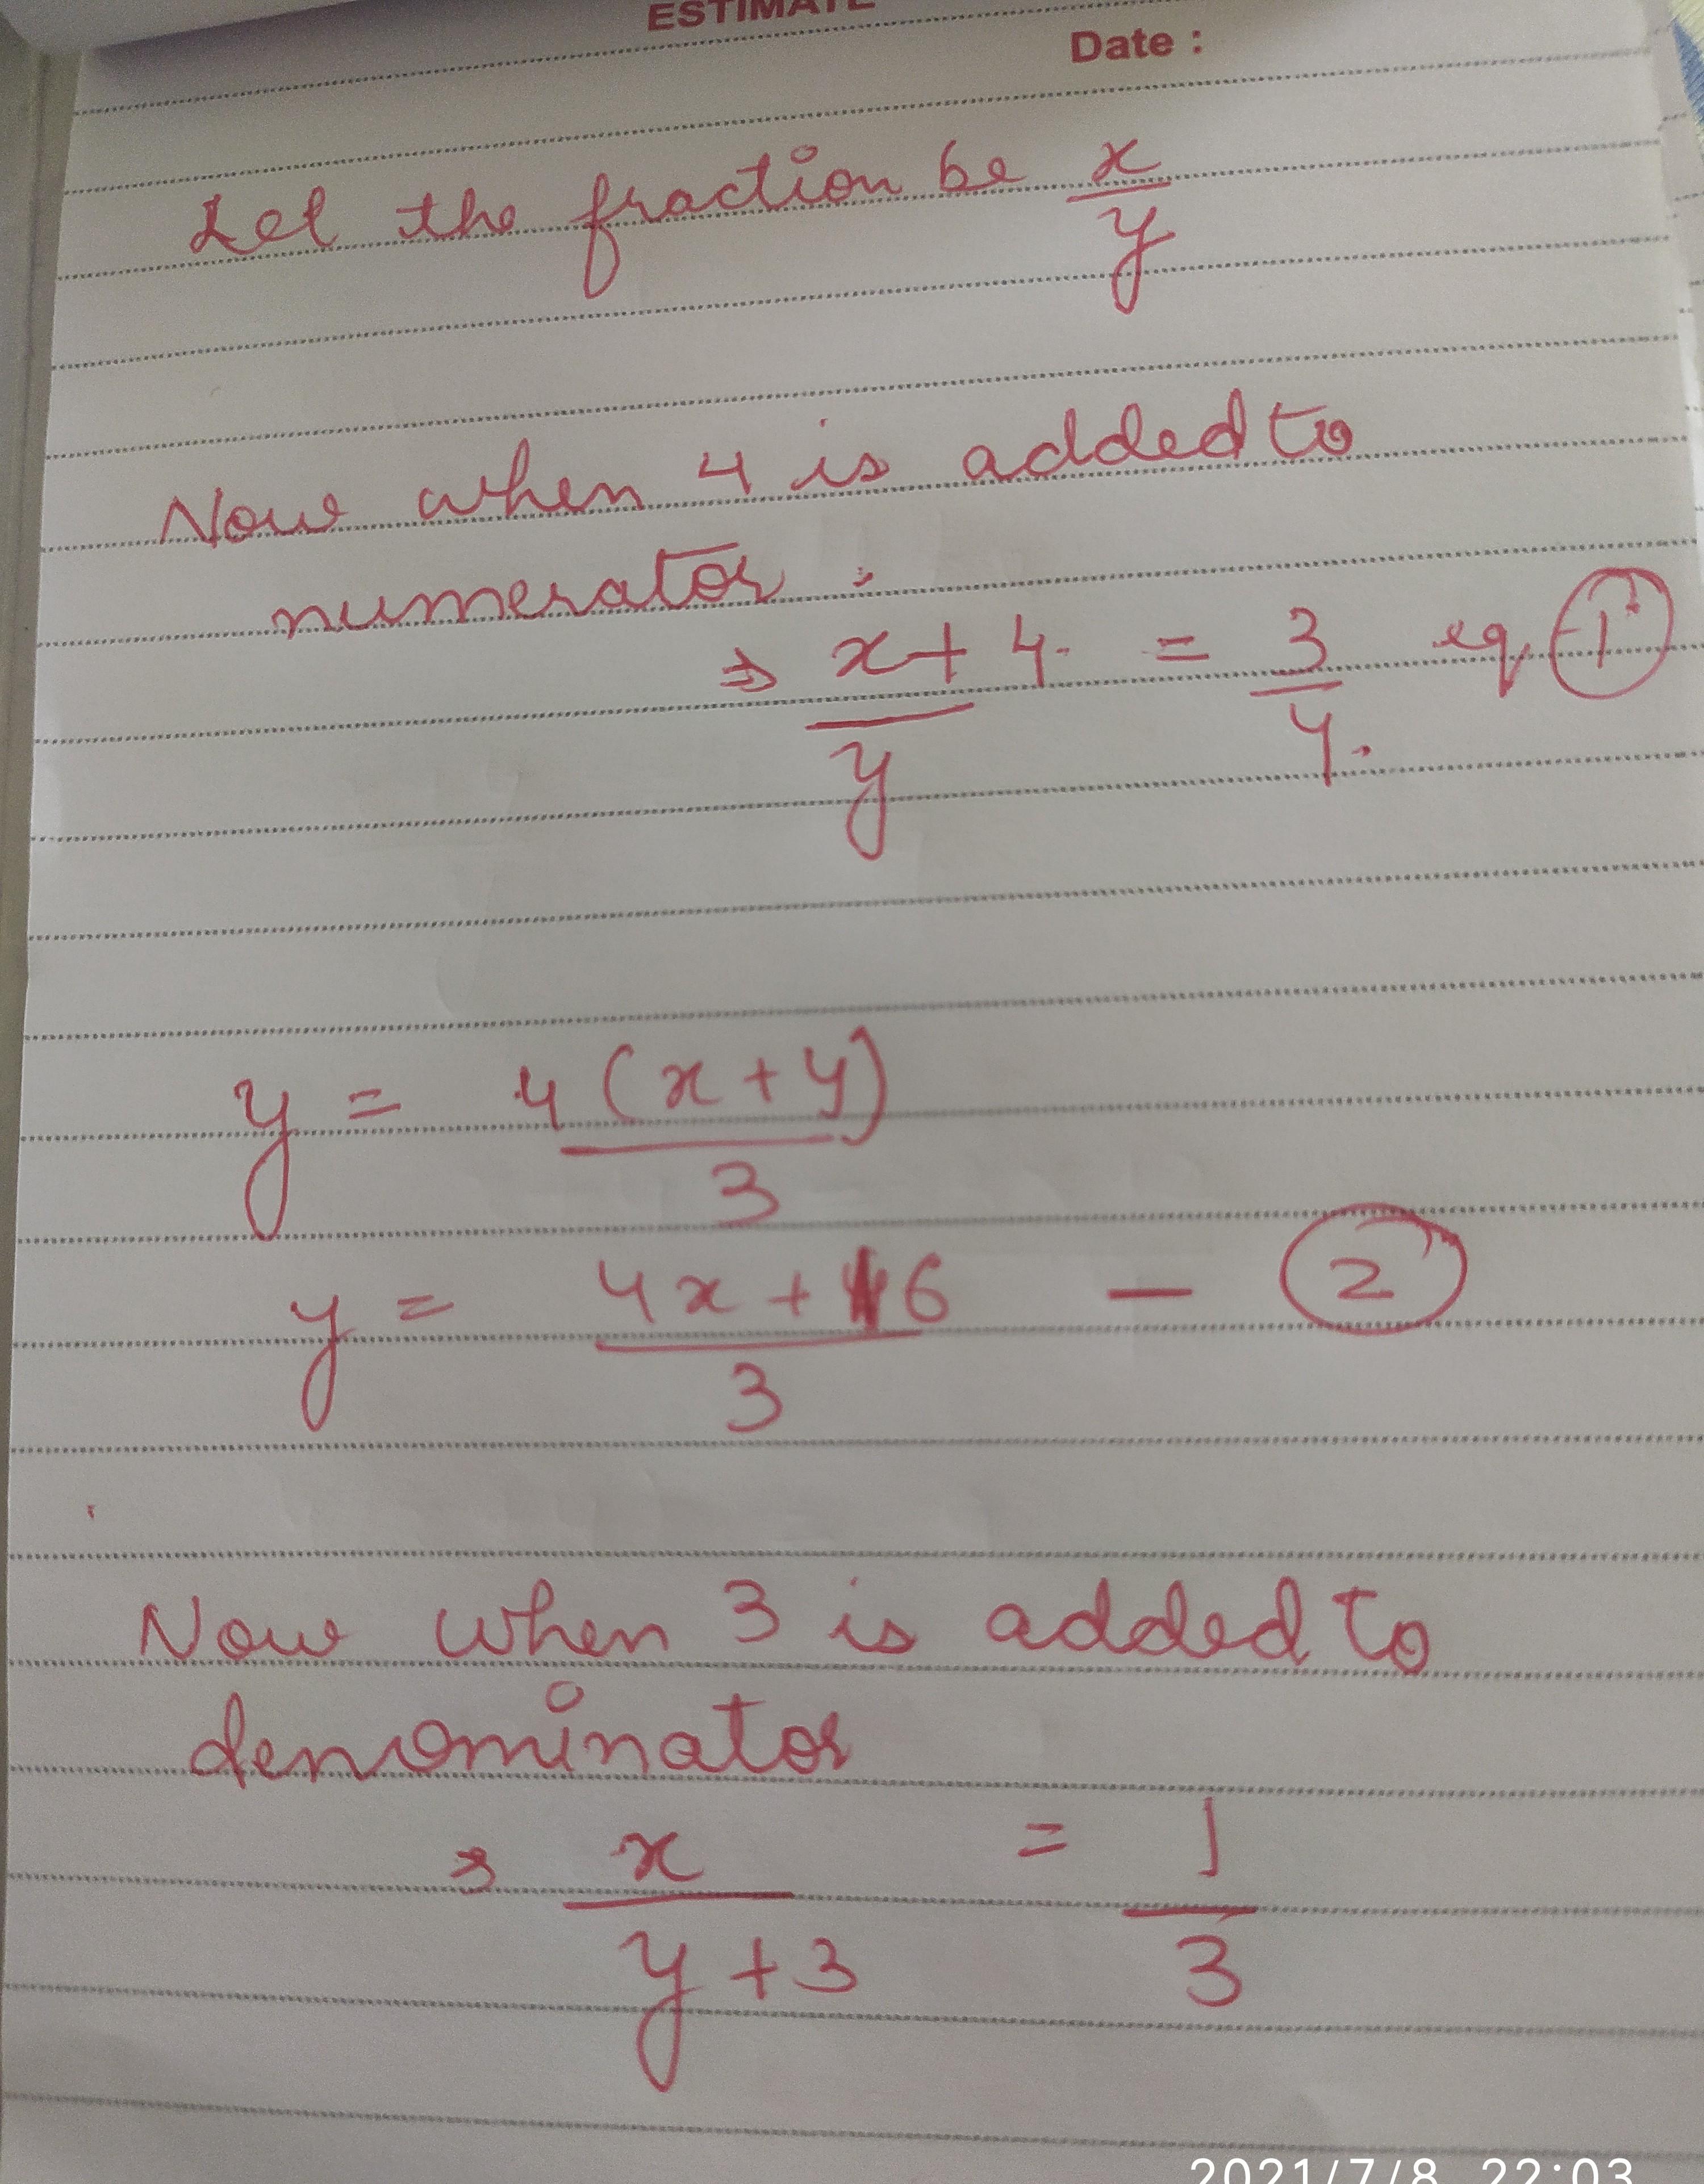 ESTIMATE
Date :
Let the fraction be x/y
Now when 4 is added to
numerator :
⇒ x + 4 / y = 3/4 eq 1
y = 4(x+4) / 3
y = 4x + 16 / 3 — 2
Now when 3 is added to
denominator
⇒ x / y + 3 = 1/3
2021/7/8 22:03